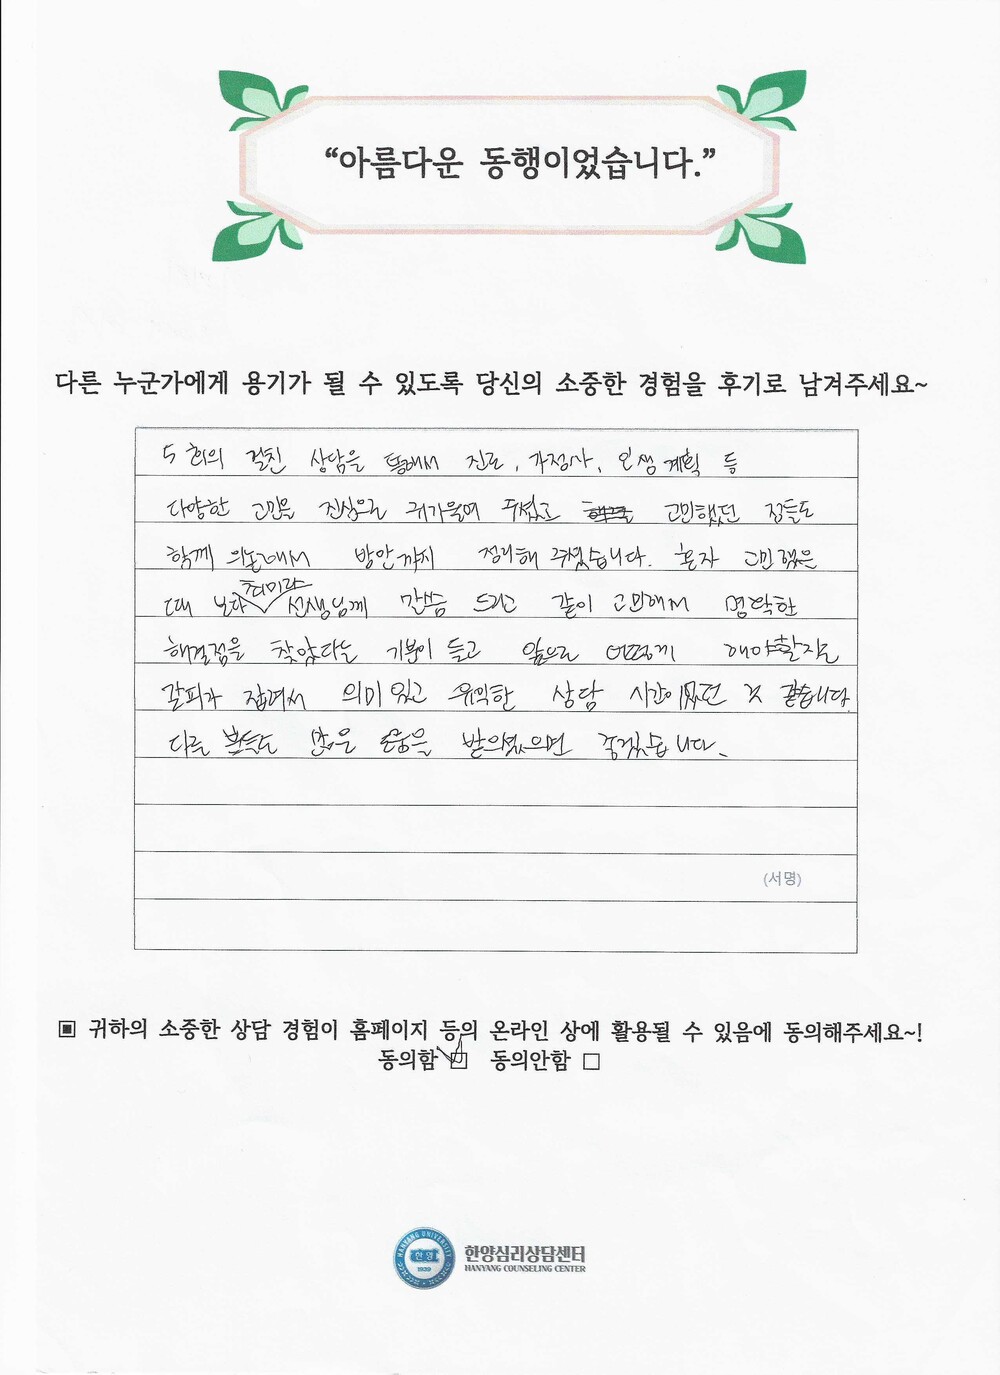 “아름다운 동행이었습니다.”
다른 누군가에게 용기가 될 수 있도록 당신의 소중한 경험을 후기로 남겨주세요~
5회의 걸친 상담을 통해서 진로, 가정사, 인생 계획 등
다양한 고민을 진심으로 귀기울여 주셨고 고민했던 점들도
함께 의논해서 방안까지 정리해 주셨습니다. 혼자 고민했을
때 보다 최미라 선생님께 말씀 드리고 같이 고민해서 명확한
해결점을 찾았다는 기분이 들고 앞으로 어떻게 해야할지도
갈피가 잡려서 의미있고 유익한 상담 시간이었던 것 같습니다.
다른 분들도 많은 도움을 받으셨으면 좋겠습니다.
(서명)
▣ 귀하의 소중한 상담 경험이 홈페이지 등의 온라인 상에 활용될 수 있음에 동의해주세요~!
동의함 ☑ 동의안함 □
HANYANG UNIVERSITY
한양
1939
한양심리상담센터
HANYANG COUNSELING CENTER